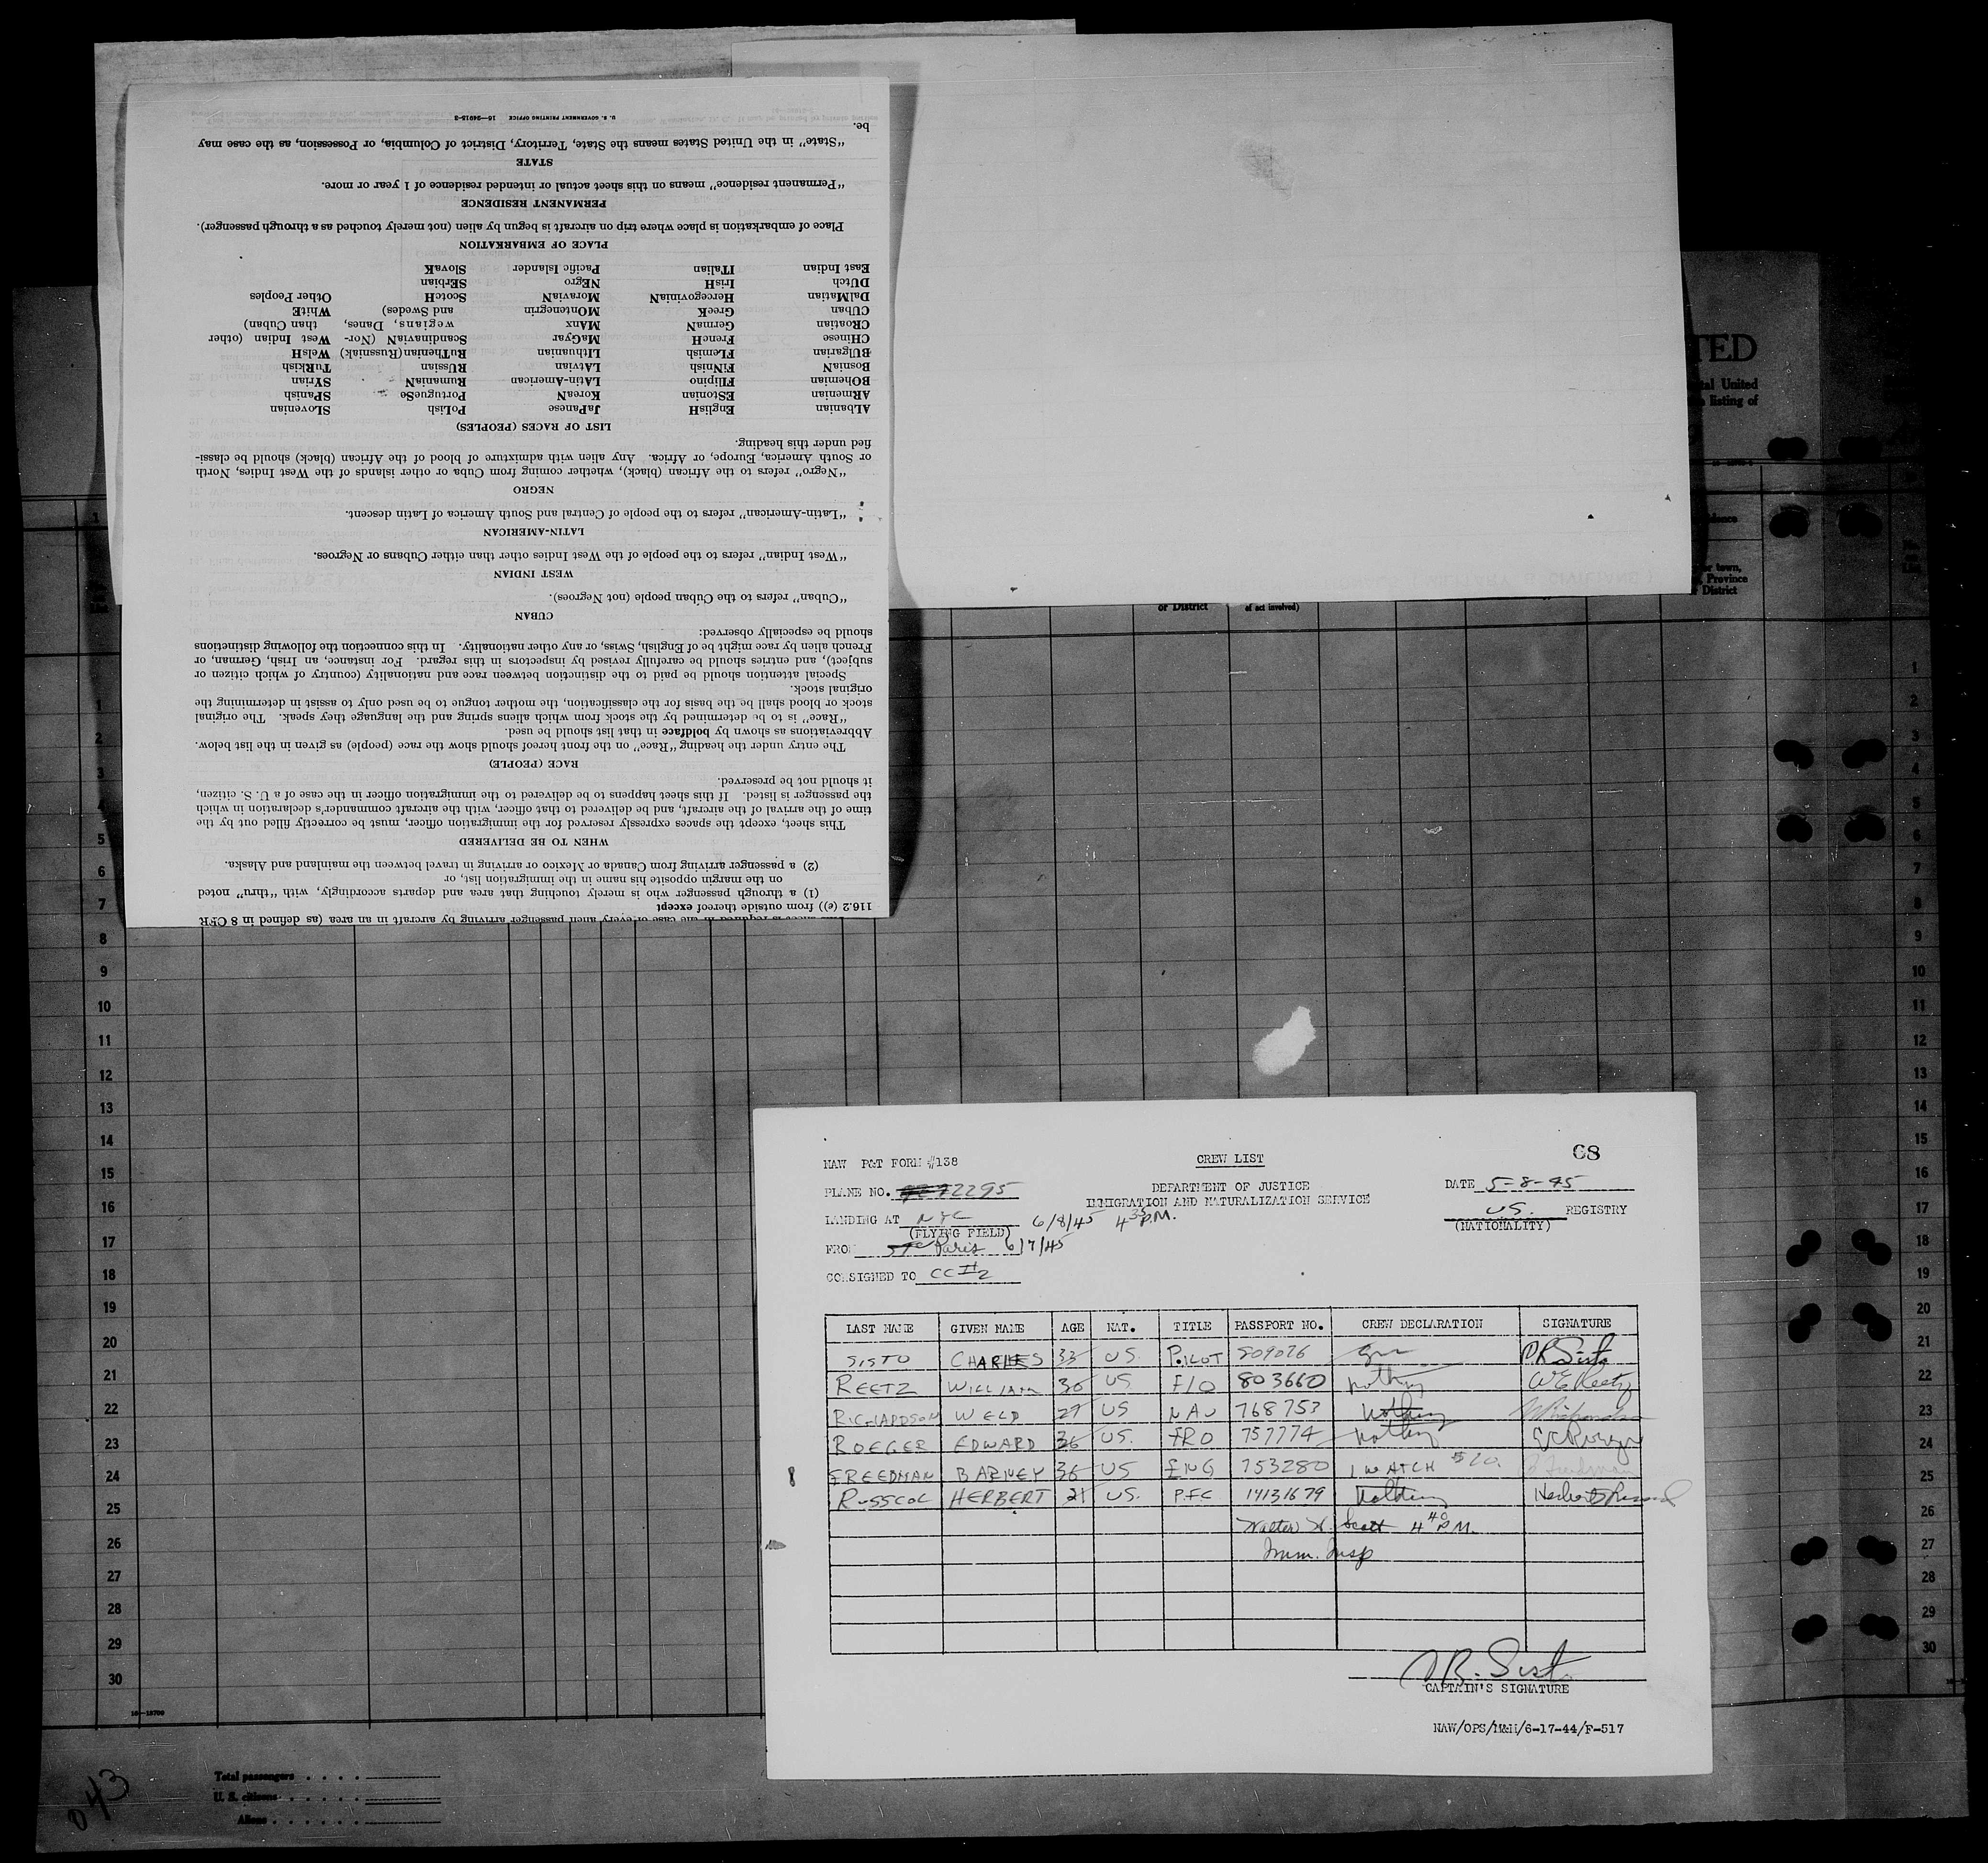 116.2 (e)) from outside thereof except
(1) a through passenger who is merely touching that area and departs accordingly, with “thru” noted
on the margin opposite his name in the immigration list, or
(2) a passenger arriving from Canada or Mexico or arriving in travel between the mainland and Alaska.
WHEN TO BE DELIVERED
This sheet, except the spaces expressly reserved for the immigration officer, must be correctly filled out by the
time of the arrival of the aircraft, and be delivered to that officer, with the aircraft commander's declaration in which
the passenger is listed. If this sheet happens to be delivered to the immigration officer in the case of a U. S. citizen,
it should not be preserved.
RACE (PEOPLE)
The entry under the heading “Race” on the front hereof should show the race (people) as given in the list below.
Abbreviations as shown by boldface in that list should be used.
“Race” is to be determined by the stock from which aliens spring and the language they speak. The original
stock or blood shall be the basis for the classification, the mother tongue to be used only to assist in determining the
original stock.
Special attention should be paid to the distinction between race and nationality (country of which citizen or
subject), and entries should be carefully revised by inspectors in this regard. For instance, an Irish, German, or
French alien by race might be of English, Swiss, or any other nationality. In this connection the following distinctions
should be especially observed:
CUBAN
“Cuban” refers to the Cuban people (not Negroes).
WEST INDIAN
“West Indian” refers to the people of the West Indies other than either Cubans or Negroes.
LATIN-AMERICAN
“Latin-American” refers to the people of Central and South America of Latin descent.
NEGRO
“Negro” refers to the African (black), whether coming from Cuba or other islands of the West Indies, North
or South America, Europe, or Africa. Any alien with admixture of blood of the African (black) should be classi-
fied under this heading.
LIST OF RACES (PEOPLES)
AlBanian EngliSH JaPanese PoLish SLOvenian
ARmenian EStonian KoreaN PortugueSe SPanish
BOhemian FIlipino LAtin-American RumaniaN SYrian
BosniaN FiNnish LAtvian RUssian TuRkish
BUlgarian FLemish LIthuanian RuThenian (Russniak) WelsH
CHinese FrencH MaGyar ScandinaviaN (Nor- West Indian (other
CRoatian GermaN MAnx wegians, Danes, than Cuban)
CUban GreeK MOntenegrin and Swedes) WhitE
DalMatian HercegoviniaN MoraviaN ScotcH Other Peoples
DUtch IrisH NEgro SErbian
East Indian ITalian Pacific Islander SlovaK
PLACE OF EMBARKATION
Place of embarkation is place where trip on aircraft is begun by alien (not merely touched as a through passenger).
PERMANENT RESIDENCE
“Permanent residence” means on this sheet actual or intended residence of 1 year or more.
STATE
“State” in the United States means the State, Territory, District of Columbia, or Possession, as the case may
be.
U. S. GOVERNMENT PRINTING OFFICE 16—24915-3
TED
tal United
listing of
dence
or town,
Province
or District
or District
of act involved)
1
2
3
4
5
6
7
8
9
10
11
12
13
14
15
16
17
18
19
20
21
22
23
24
25
26
27
28
29
30
16—18700
Total passengers
U. S. citizens
Aliens
043
NAW P&T FORM #138
CREW LIST
68
PLANE NO. 2295
DEPARTMENT OF JUSTICE
IMMIGRATION AND NATURALIZATION SERVICE
DATE 5-8-45
LANDING AT NYC 6/8/45 4 35 P.M.
(FLYING FIELD)
US. REGISTRY
(NATIONALITY)
FROM Paris 6/7/45
CONSIGNED TO CC #2
LAST NAME GIVEN NAME AGE NAT. TITLE PASSPORT NO. CREW DECLARATION SIGNATURE
SISTO CHARLES 33 US. PILOT 509076
REETZ WILLIAM 30 US F/O 803660 nothing
RICHARDSON WELD 29 US NAV 768753 nothing
ROEGER EDWARD 36 US. FRO 757774 nothing
FREEDMAN BARNEY 36 US ENG 753280 1 WATCH B Freedman
RUSSCOL HERBERT 21 US. PFC 14131679
Walter H. Scott 4 40 P.M.
Imm. Insp
CAPTAIN'S SIGNATURE
NAW/OPS/M&H/6-17-44/F-517